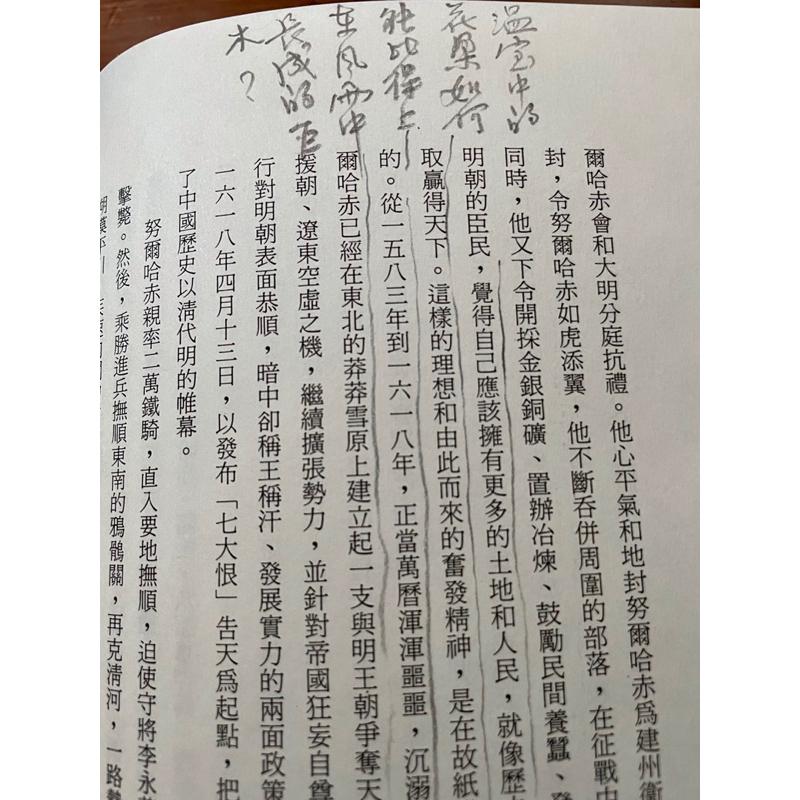 溫室中的
花朵如何
能比得上
在风雨中
長成的巨
木？
爾哈赤會和大明分庭抗禮。他心平氣和地封努爾哈赤爲建州衛
封，令努爾哈赤如虎添翼，他不斷吞併周圍的部落，在征戰中
同時，他又下令開採金銀銅礦、置辦冶煉、鼓勵民間養蠶、
明朝的臣民，覺得自己應該擁有更多的土地和人民，就像歷
取贏得天下。這樣的理想和由此而來的奮發精神，是在故紙
的。從一五八三年到一六一八年，正當萬曆渾渾噩噩，沉溺
爾哈赤已經在東北的莽莽雪原上建立起一支與明王朝爭奪天
援朝、遼東空虛之機，繼續擴張勢力，並針對帝國狂妄自尊
行對明朝表面恭順，暗中卻稱王稱汗、發展實力的兩面政策
一六一八年四月十三日，以發布「七大恨」告天爲起點，把
了中國歷史以清代明的帷幕。
努爾哈赤親率二萬鐵騎，直入要地撫順，迫使守將李永
擊斃。然後，乘勝進兵撫順東南的鴉鶻關，再克清河，一路